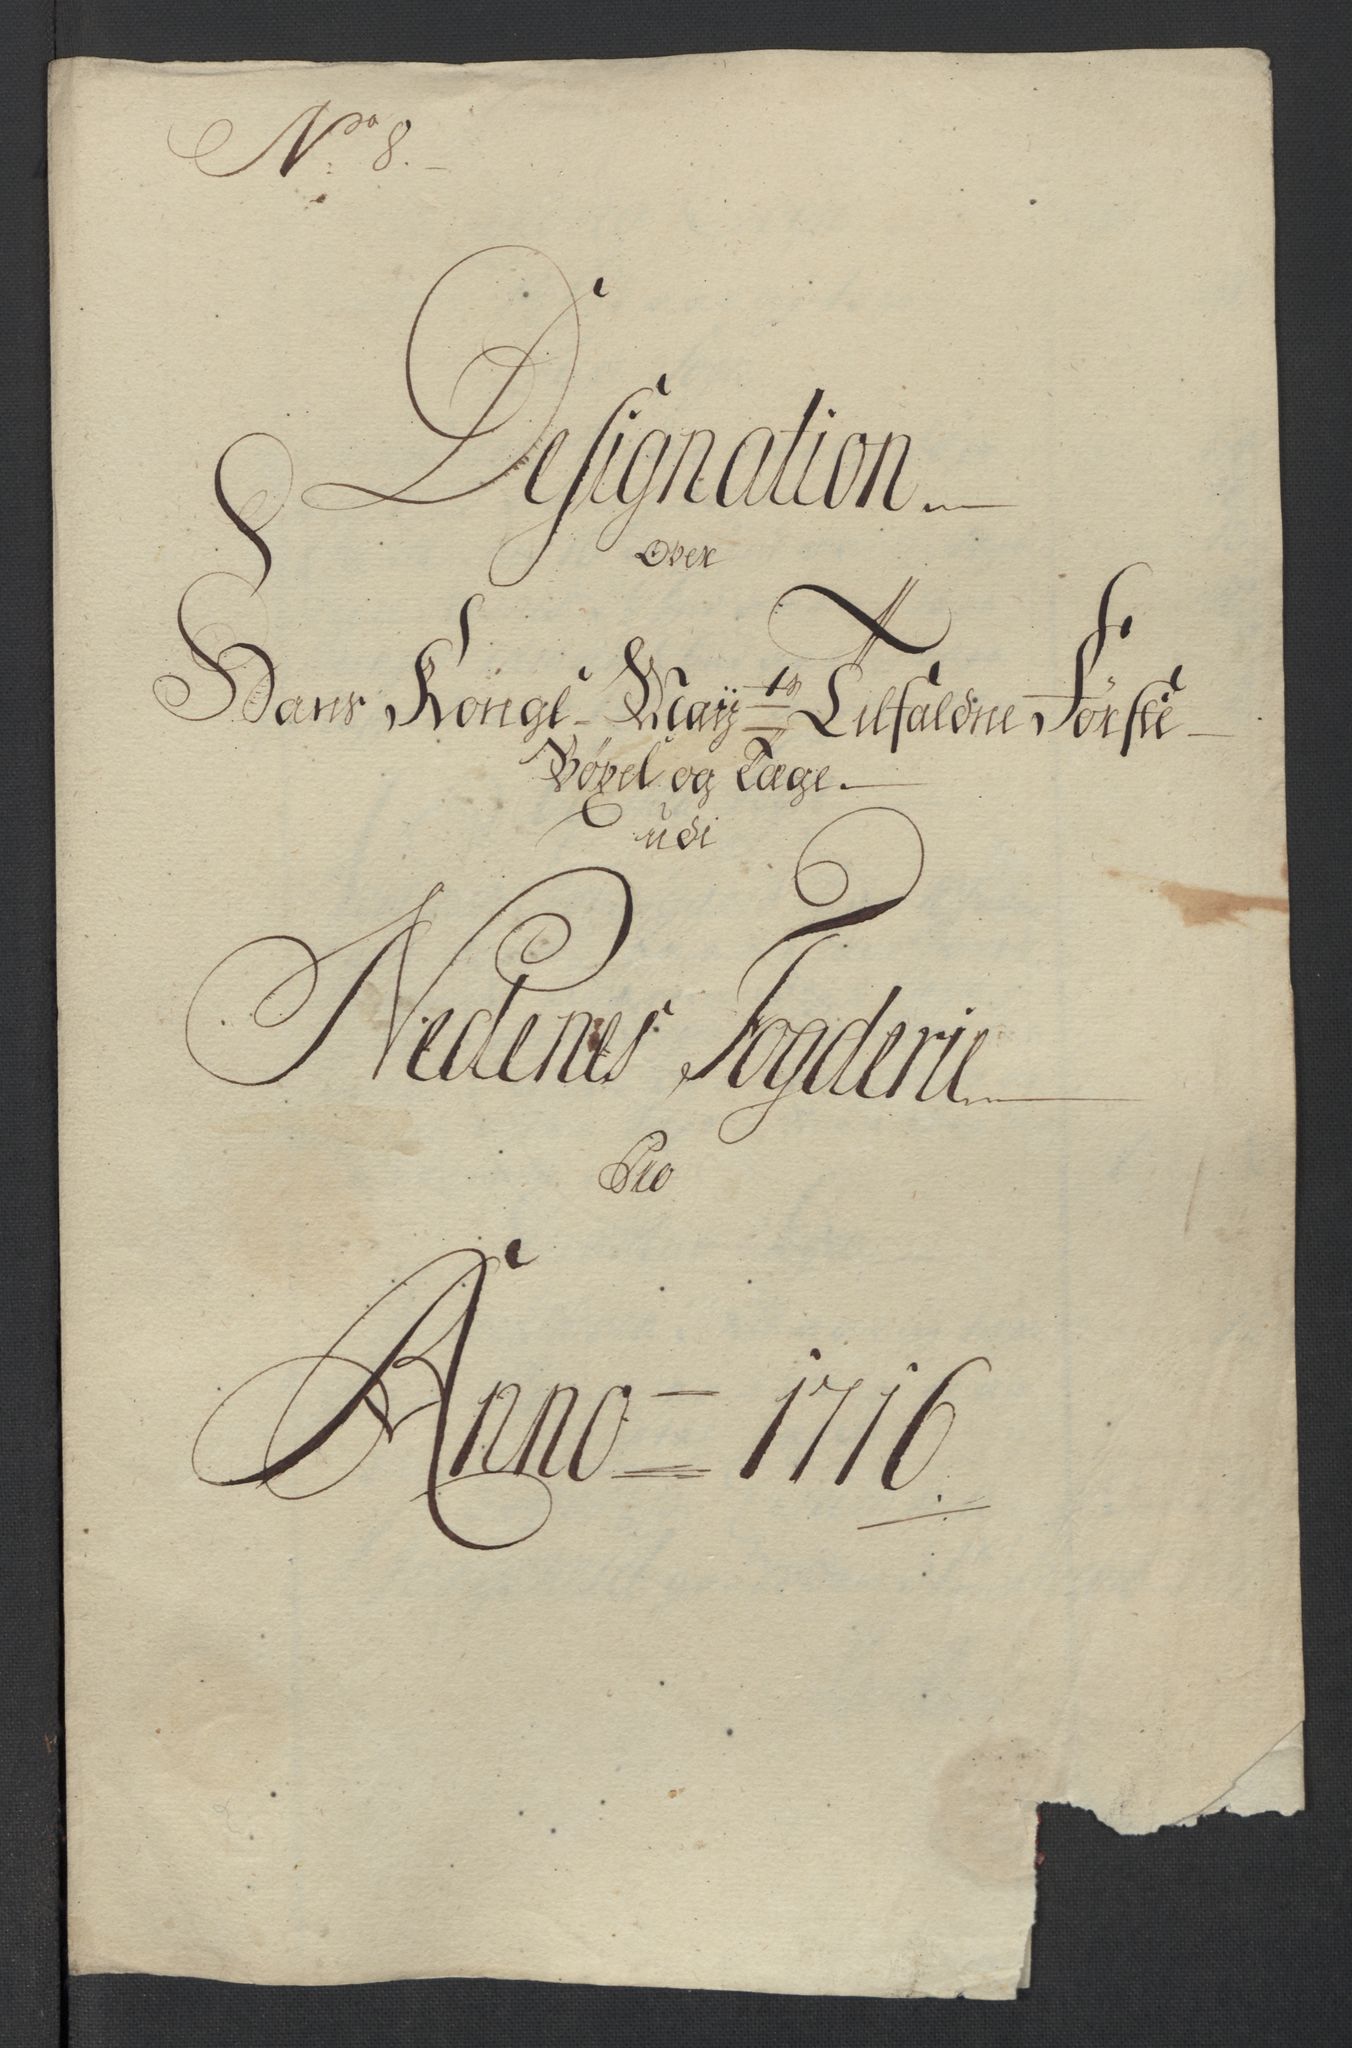 No 8.
Designation
Over
Hans Kongl. Mayts Tilfaldne Første
Bøxel og Tæge.
udi
Nedenes Fogderie
Pro
Anno 1716.